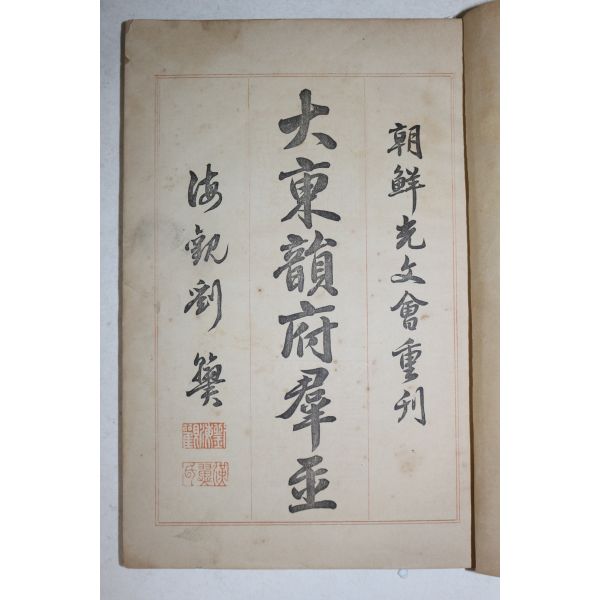 朝鮮光文會重刊
大東韻府羣玉
海觀劉